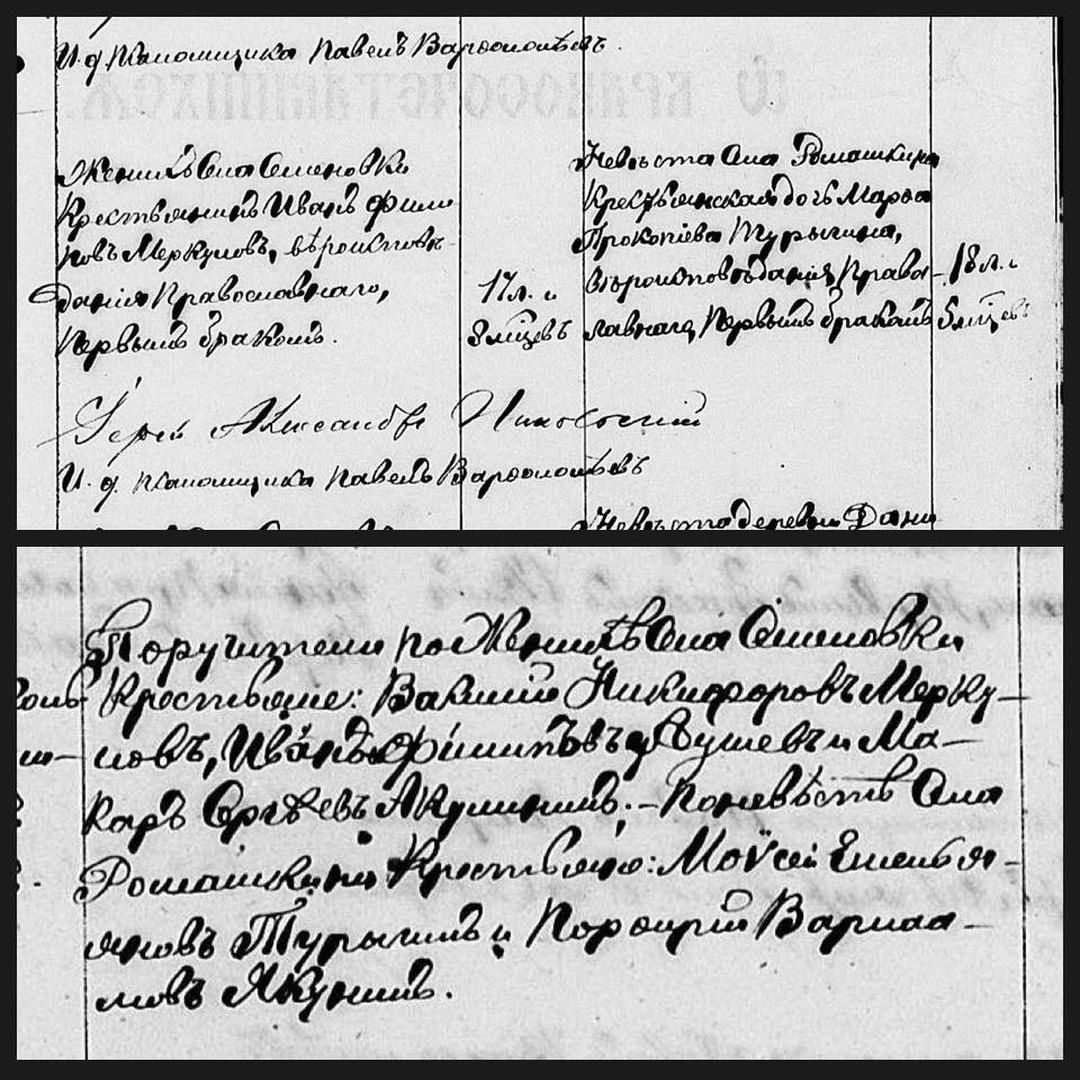 И. д. Псаломщика Павелъ Варѳоломѣевъ.
Женихъ Села Семеновки
Крестьянинъ Иванъ Фили
повъ Меркуловъ, вѣроисповѣ-
данія Православнаго,
Первымъ бракомъ.
17 л. и
8 мѣцевъ
Невѣста Села Ромашкина
Крестьянская дочь Марѳа
Прокопіева Турыгина,
вѣроисповѣданія Право-
лавнаго, Первымъ бракомъ
18 л. и
5 мѣцевъ
Іерей Александръ
И. д. псаломщика Павелъ Варѳоломѣевъ
Невѣста деревни Дани
Поручители по Женихѣ Села Семеновки
Крестьяне: Никифоровъ Мерку-
ловъ, Иванъ Филиповъ и Ма-
каръ Сергѣевъ Акулининъ; – По невѣстѣ Села
Ромашкина Крестьяне: Моѵсей Емелья-
яновъ Турыгинъ и Порфирій Варлаа-
мовъ Якунинъ.